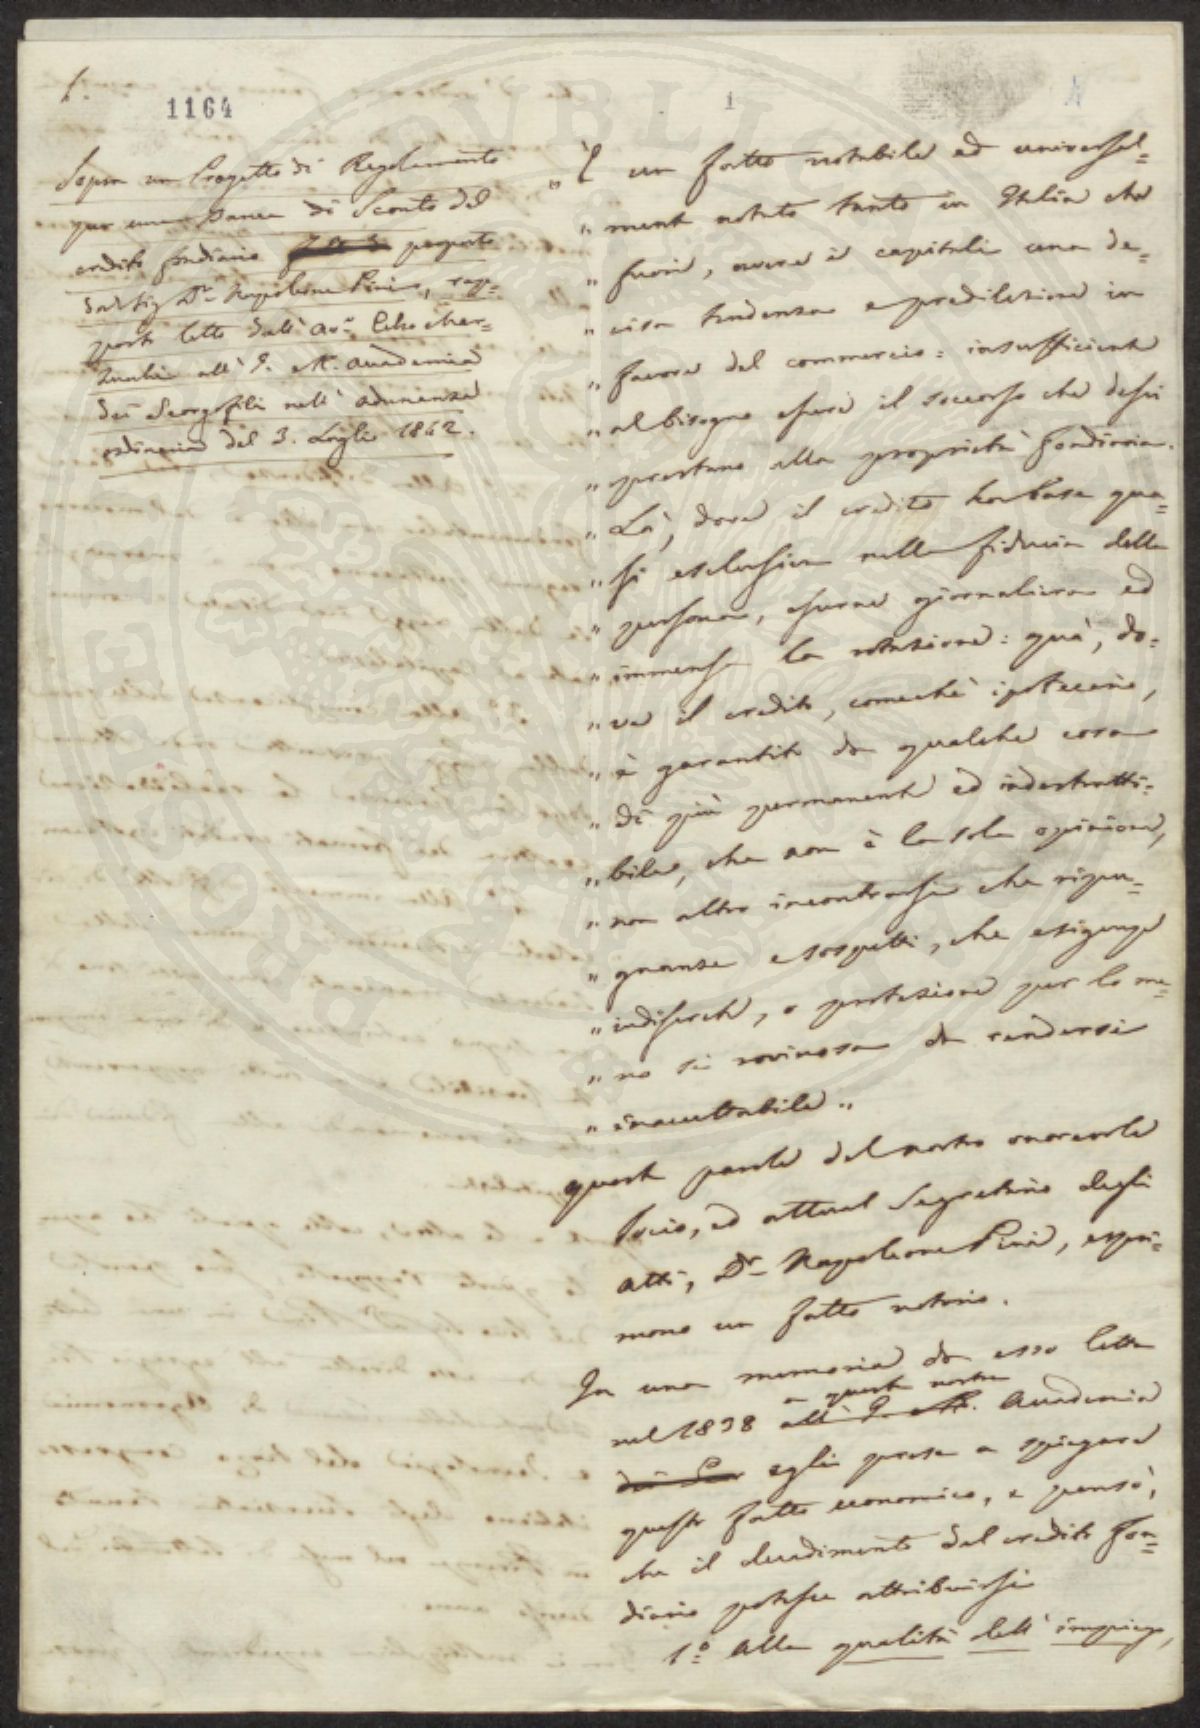 1.
1164
1
Sopra un Progetto di Regolamento
per una Banca di Sconto del
credito fondiario proposto
dal Sig. Dr. Napoleone Pini, rap=
porto letto dall' Avo. Celso Mar=
zucchi all' I. e R. Accademia
dei Georgofili nell' adunanza
ordinaria del 3. Luglio 1842.
" È un fatto notabile ed universal=
" mente notato tanto in Italia che
" fuori, avere i capitali una de=
" cisa tendenza e predilezione in
" favore del commercio: insufficiente
" al bisogno essere il soccorso che dessi
" prestano alla proprietà fondiaria.
" Là, dove il credito ha base qua=
" si esclusiva nella fiducia della
" persona, esserne giornaliera ed
" immensa la rotazione: quà, do=
" ve il credito, comechè ipotecario,
" è garantito da qualche cosa
" di più permanente ed indestrutti=
" bile, che non è la sola opinione,
" non altro incontrarsi che ripu=
" gnanze e sospetti, che esigenze
" indiscrete, o protezione per lo me=
" no sì rovinosa da rendersi
" inaccettabile "
Queste parole del nostro onorevole
Socio, ed attual Segretario degli
Atti, Dr. Napoleone Pini, espri=
mono un fatto notorio.
In una memoria da esso letta
a questa nostra
nel 1838 all' I. e R. Accademia
dei Geor egli prese a spiegare
questo fatto economico, e pensò,
che il decadimento del credito fon=
diario potesse attribuirsi
1o. Alla qualità dell' impiego,